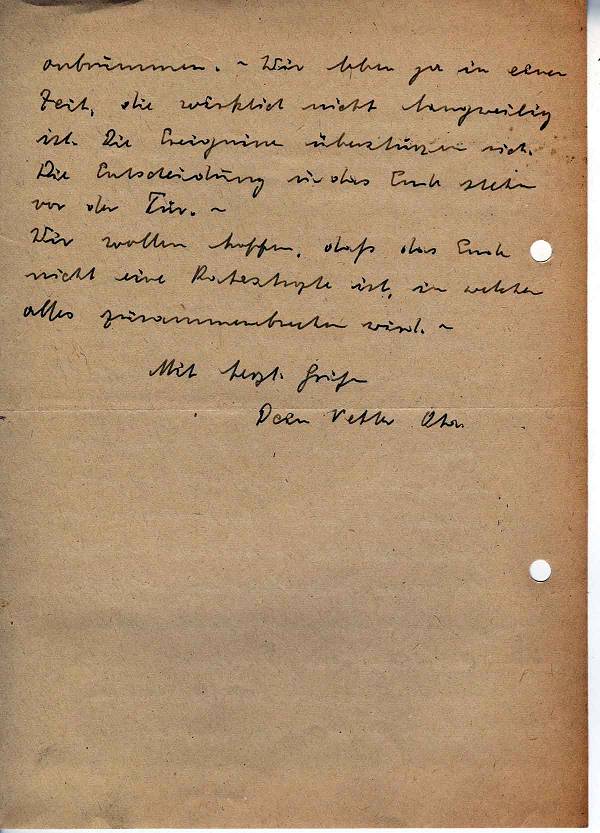 anbrummen. ~ Wir leben ja in einer
Zeit, die wirklich nicht langweilig
ist. Die Ereignisse überstürzen sich.
Die Entscheidung u. das Ende stehen
vor der Tür. ~
Wir wollen hoffen, daß das Ende
nicht eine Katastrofe ist, in welcher
alles zusammenbrechen wird. ~
Mit herzl. Grüßen
Dein Vetter